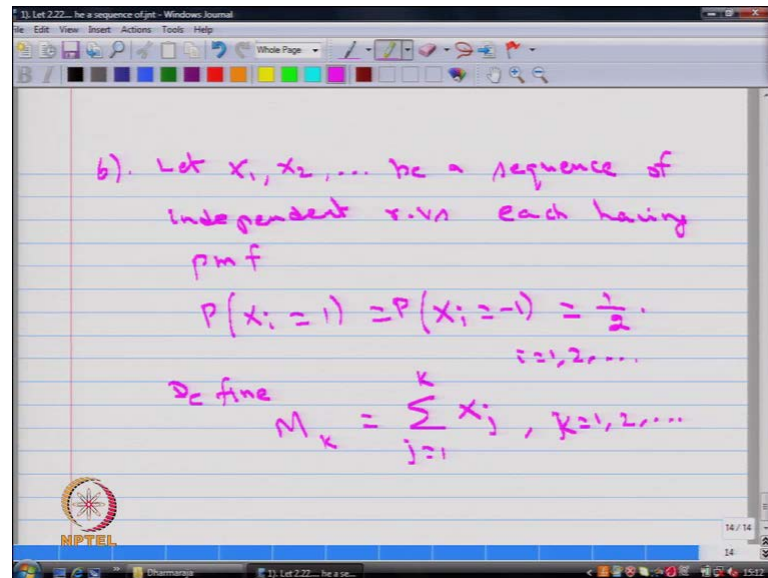 1). Let 2.22.... he a sequence of.jnt - Windows Journal
File Edit View Insert Actions Tools Help
Whole Page
B I
6). Let X₁, X₂, ... be a sequence of
independent r.vs each having
pmf
P(Xᵢ = 1) = P(Xᵢ = -1) = 1/2.
i = 1, 2, ...
Define
M_k = ∑_{j=1}^{k} X_j, k = 1, 2, ...
NPTEL
14 / 14
14
Dharmaraja
1). Let 2.22.... he a se...
15:12